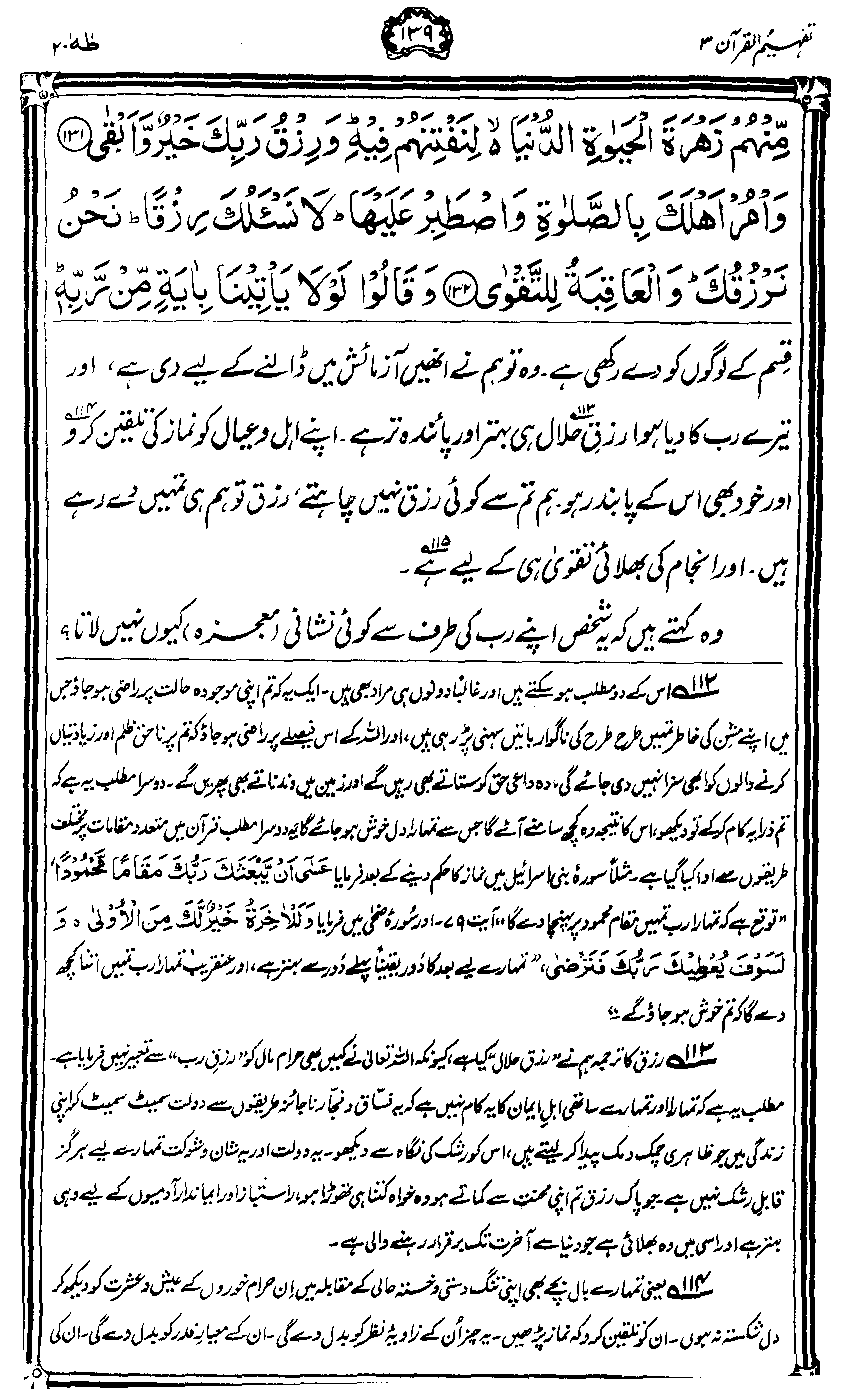 تفہیم القرآن ۳
۱۳۹
طٰهٰ ۲۰
مِّنْهُمْ زَهْرَةَ الْحَيٰوةِ الدُّنْيَا ۙ لِنَفْتِنَهُمْ فِيْهِ ؕ وَرِزْقُ رَبِّكَ خَيْرٌ وَّاَبْقٰى ﴿۱۳۱﴾
وَاْمُرْ اَهْلَكَ بِالصَّلٰوةِ وَاصْطَبِرْ عَلَيْهَا ؕ لَا نَسْـَٔلُكَ رِزْقًا ؕ نَحْنُ
نَرْزُقُكَ ؕ وَالْعَاقِبَةُ لِلتَّقْوٰى ﴿۱۳۲﴾ وَقَالُوْا لَوْلَا يَاْتِيْنَا بِاٰيَةٍ مِّنْ رَّبِّهٖ ؕ
قسم کے لوگوں کو دے رکھی ہے۔ وہ تو ہم نے انھیں آزمائش میں ڈالنے کے لیے دی ہے، اور
تیرے رب کا دیا ہوا رزقِ حلال ۱۱۳ ہی بہتر اور پائندہ تر ہے۔ اپنے اہل و عیال کو نماز کی تلقین کرو ۱۱۴
اور خود بھی اس کے پابند رہو۔ ہم تم سے کوئی رزق نہیں چاہتے، رزق تو ہم ہی تمہیں دے رہے
ہیں۔ اور انجام کی بھلائی تقویٰ ہی کے لیے ہے ۱۱۵۔
وہ کہتے ہیں کہ یہ شخص اپنے رب کی طرف سے کوئی نشانی (معجزہ) کیوں نہیں لاتا؟
۱۱۲ اس کے دو مطلب ہو سکتے ہیں اور غالباً دونوں ہی مراد بھی ہیں۔ ایک یہ کہ تم اپنی موجودہ حالت پر راضی ہو جاؤ جس
میں اپنے مشن کی خاطر تمہیں طرح طرح کی ناگوار باتیں سہنی پڑ رہی ہیں، اور اللہ کے اس فیصلے پر راضی ہو جاؤ کہ تم پر ناحق ظلم اور زیادتیاں
کرنے والوں کو ابھی سزا نہیں دی جائے گی، وہ داعی حق کو ستاتے بھی رہیں گے اور زمین میں دندناتے بھی پھریں گے۔ دوسرا مطلب یہ ہے کہ
تم ذرا یہ کام کر کے تو دیکھو، اس کا نتیجہ وہ کچھ سامنے آئے گا جس سے تمہارا دل خوش ہو جائے گا۔ یہ دوسرا مطلب قرآن میں متعدد مقامات پر مختلف
طریقوں سے ادا کیا گیا ہے۔ مثلاً سورۂ بنی اسرائیل میں نماز کا حکم دینے کے بعد فرمایا عَسٰٓى اَنْ يَّبْعَثَكَ رَبُّكَ مَقَامًا مَّحْمُوْدًا،
”توقع ہے کہ تمہارا رب تمہیں مقام محمود پر پہنچا دے گا“ آیت ۷۹۔ اور سورۂ ضحیٰ میں فرمایا وَلَلْاٰخِرَةُ خَيْرٌ لَّكَ مِنَ الْاُوْلٰى ہ وَ
لَسَوْفَ يُعْطِيْكَ رَبُّكَ فَتَرْضٰى، ”تمہارے لیے بعد کا دور یقیناً پہلے دور سے بہتر ہے، اور عنقریب تمہارا رب تمہیں اتنا کچھ
دے گا کہ تم خوش ہو جاؤ گے۔“
۱۱۳ رزق کا ترجمہ ہم نے ”رزق حلال“ کیا ہے، کیونکہ اللہ تعالیٰ نے کہیں بھی حرام مال کو ”رزقِ رب“ سے تعبیر نہیں فرمایا ہے۔
مطلب یہ ہے کہ تمہارا اور تمہارے ساتھی اہلِ ایمان کا یہ کام نہیں ہے کہ یہ فسّاق و فجّار ناجائز طریقوں سے دولت سمیٹ سمیٹ کر اپنی
زندگی میں جو ظاہری چمک دمک پیدا کر لیتے ہیں، اس کو رشک کی نگاہ سے دیکھو۔ یہ دولت اور یہ شان و شوکت تمہارے لیے ہرگز
قابلِ رشک نہیں ہے۔ جو پاک رزق تم اپنی محنت سے کماتے ہو وہ خواہ کتنا ہی تھوڑا ہو، راستباز اور ایماندار آدمیوں کے لیے وہی
بہتر ہے اور اسی میں وہ بھلائی ہے جو دنیا سے آخرت تک برقرار رہنے والی ہے۔
۱۱۴ یعنی تمہارے بال بچے بھی اپنی تنگ دستی و خستہ حالی کے مقابلہ میں اِن حرام خوروں کے عیش و عشرت کو دیکھ کر
دل شکستہ نہ ہوں۔ ان کو تلقین کرو کہ نماز پڑھیں۔ یہ چیز اُن کے زاویۂ نظر کو بدل دے گی۔ ان کے معیارِ قدر کو بدل دے گی۔ ان کی